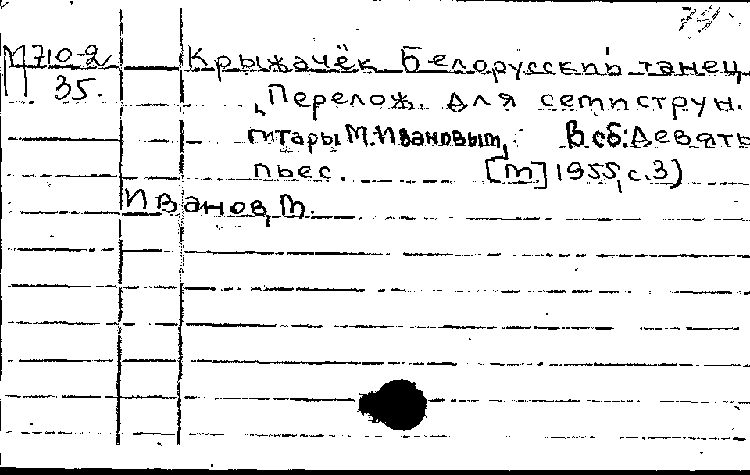 74
М 710-2 Крыжачёк Белорусский танец.
35. Перелож. для семиструн.
гитары М. Ивановым, В сб: Девять
пьес. [М] 1955, с. 3)
Иванов, М.